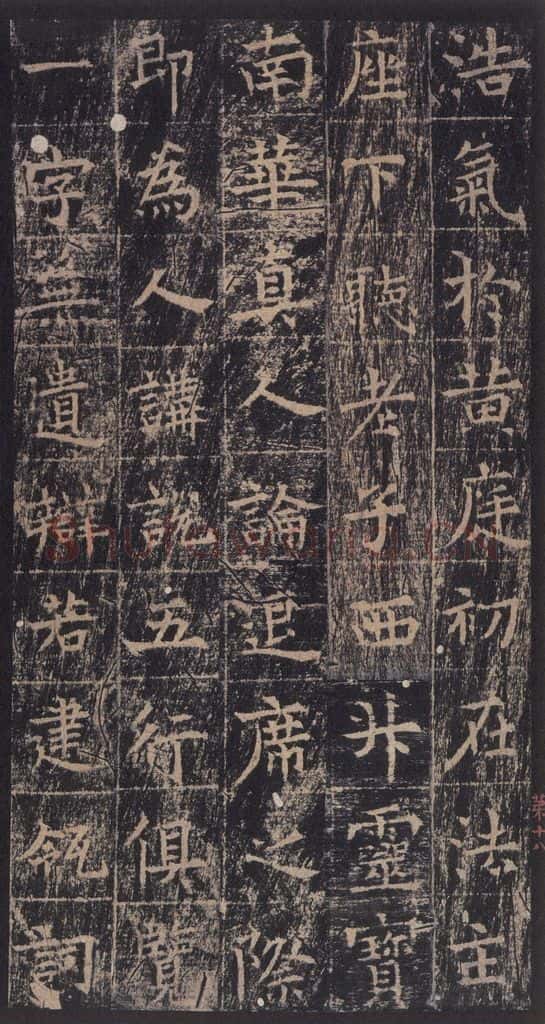 浩氣於黄庭初在法主
座下聽老子西升靈寶
南華真人論退席之際
即為人講說五行俱覽
一字無遺辯若建瓴詞